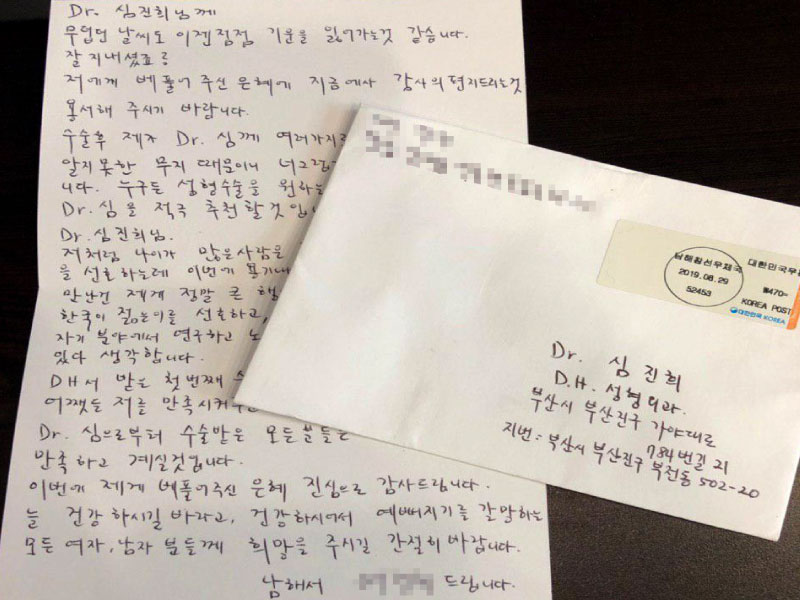 Dr. 심진희님께
무덥던 날씨도 이젠 점점 기운을 잃어가는것 같습니다.
잘 지내셨죠?
저에게 베풀어 주신 은혜에 지금에사 감사의 편지드리는것
용서해 주시기 바랍니다.
수술후 제가 Dr. 심께 여러가지로
알지 못한 무지 때문이니 너그럽
니다. 누구든 성형수술을 원하는
Dr. 심을 적극 추천할것입니
Dr. 심진희님.
저처럼 나이가 많은사람을
을 선호하는데 이번에 용기내
만난건 제게 정말 큰 행
한국이 젊은이를 선호하고,
자기 분야에서 연구하고 노
있다 생각합니다.
DH서 받은 첫번째 수
어쨌든 저를 만족시켜주
Dr. 심으로부터 수술받은 모든분들은
만족하고 계실것입니다.
이번에 제게 베풀어주신 은혜 진심으로 감사드립니다.
늘 건강하시길 바라고, 건강하시어서 예뻐지기를 갈망하는
모든 여자, 남자 분들께 희망을 주시길 간절히 바랍니다.
남해서 드립니다.
남해창선우체국
2019.08.29
52453
대한민국우
₩470
KOREA POST
대한민국 KOREA
Dr. 심진희
D.H. 성형외과.
부산시 부산진구 가야대로
784번길 지
지번: 부산시 부산진구 부전동 502-20